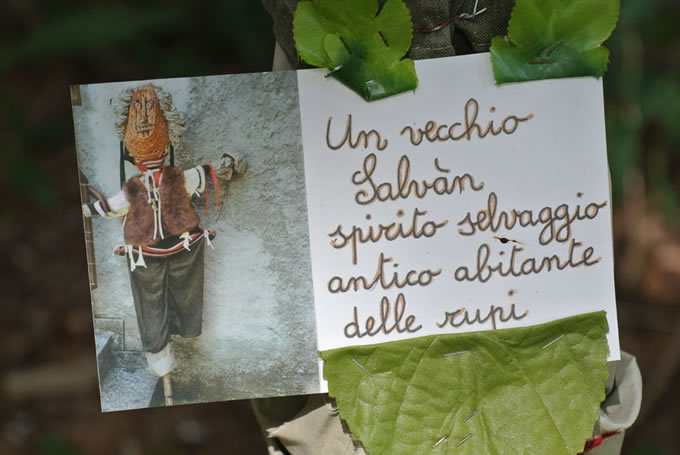 Un vecchio
Salvàn
spirito selvaggio
antico abitante
delle rupi